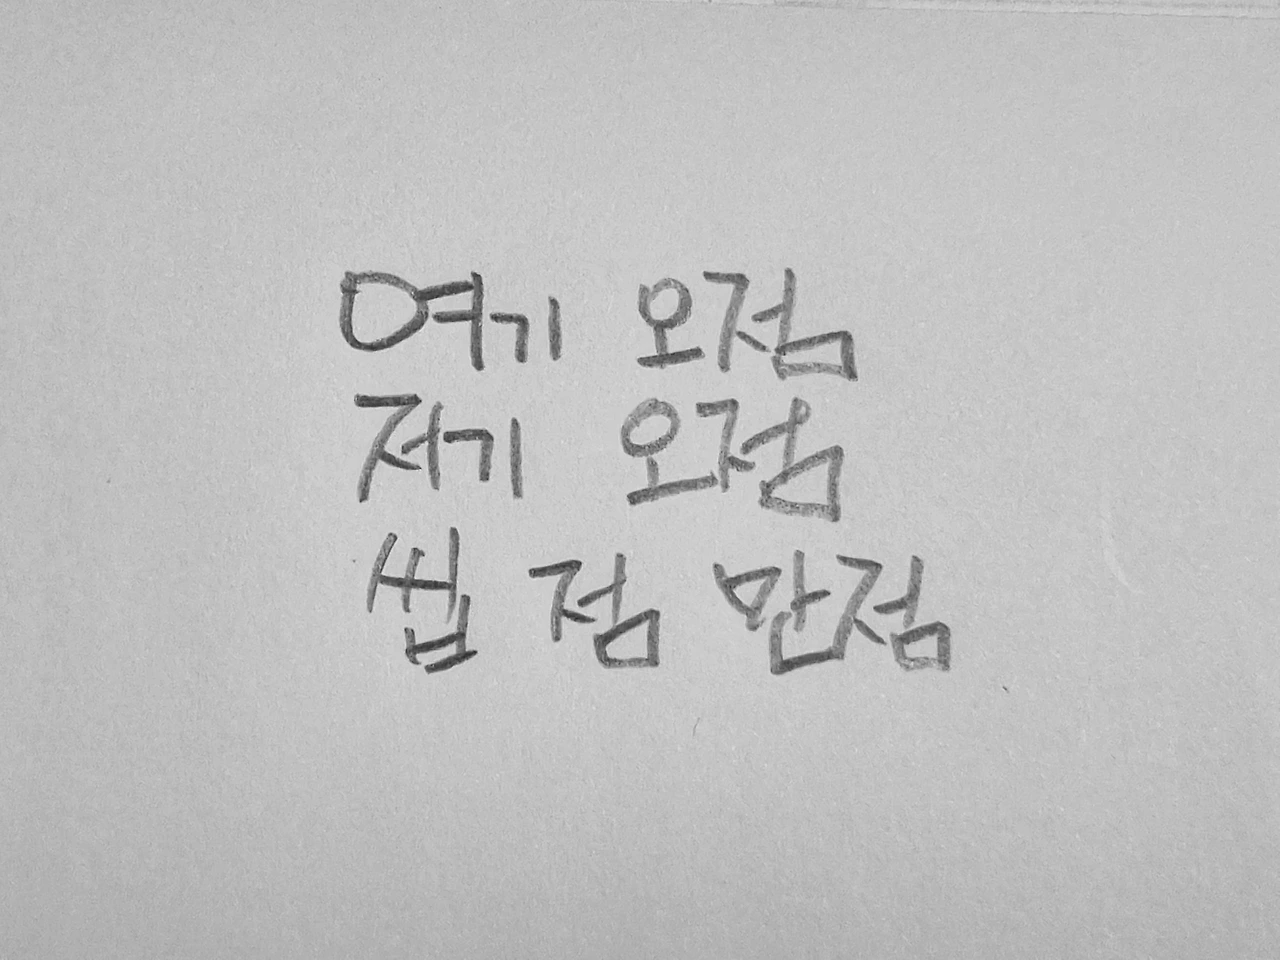 여기 오점
저기 오점
씹 점 만점